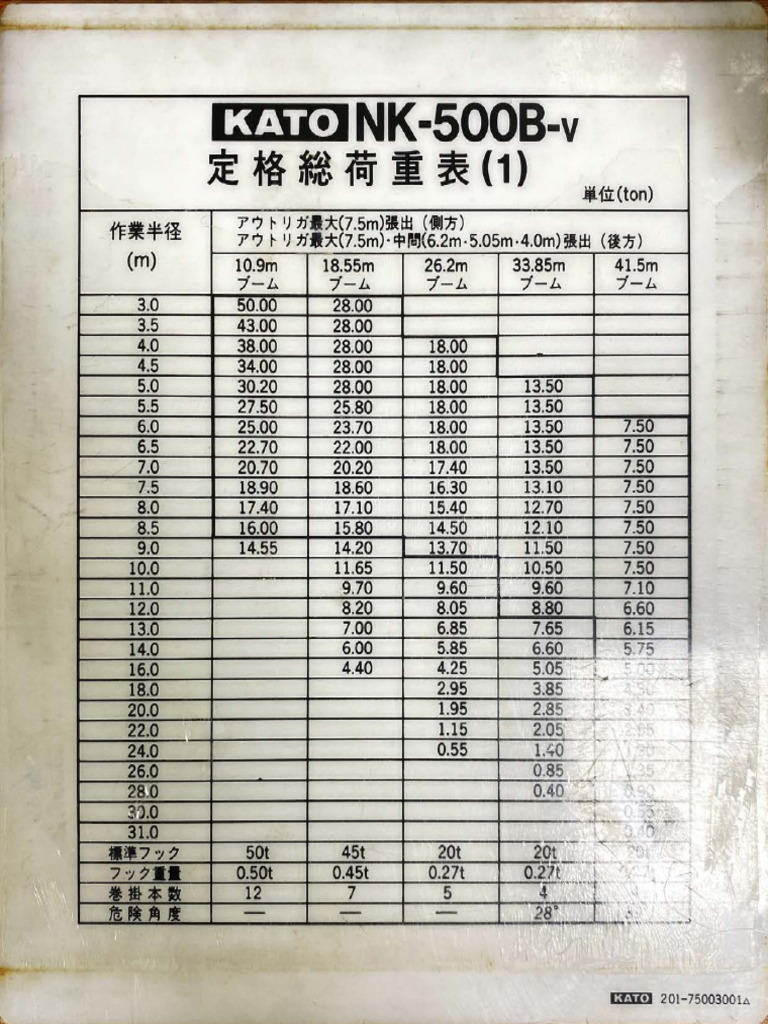 KATO NK-500B-V
定格総荷重表(1)
単位(ton)
作業半径 (m)
アウトリガ最大(7.5m)張出(側方)
アウトリガ最大(7.5m)・中間(6.2m・5.05m・4.0m)張出(後方)
10.9m ブーム 18.55m ブーム 26.2m ブーム 33.85m ブーム 41.5m ブーム
3.0 50.00 28.00
3.5 43.00 28.00
4.0 38.00 28.00 18.00
4.5 34.00 28.00 18.00
5.0 30.20 28.00 18.00 13.50
5.5 27.50 25.80 18.00 13.50
6.0 25.00 23.70 18.00 13.50 7.50
6.5 22.70 22.00 18.00 13.50 7.50
7.0 20.70 20.20 17.40 13.50 7.50
7.5 18.90 18.60 16.30 13.10 7.50
8.0 17.40 17.10 15.40 12.70 7.50
8.5 16.00 15.80 14.50 12.10 7.50
9.0 14.55 14.20 13.70 11.50 7.50
10.0 11.65 11.50 10.50 7.50
11.0 9.70 9.60 9.60 7.10
12.0 8.20 8.05 8.80 6.60
13.0 7.00 6.85 7.65 6.15
14.0 6.00 5.85 6.60 5.75
16.0 4.40 4.25 5.05
18.0 2.95 3.85
20.0 1.95 2.85
22.0 1.15 2.05
24.0 0.55 1.40
26.0 0.85
28.0 0.40
30.0
31.0
標準フック 50t 45t 20t 20t
フック重量 0.50t 0.45t 0.27t 0.27t
巻掛本数 12 7 5 4
危険角度 — — — 28°
KATO 201-75003001△